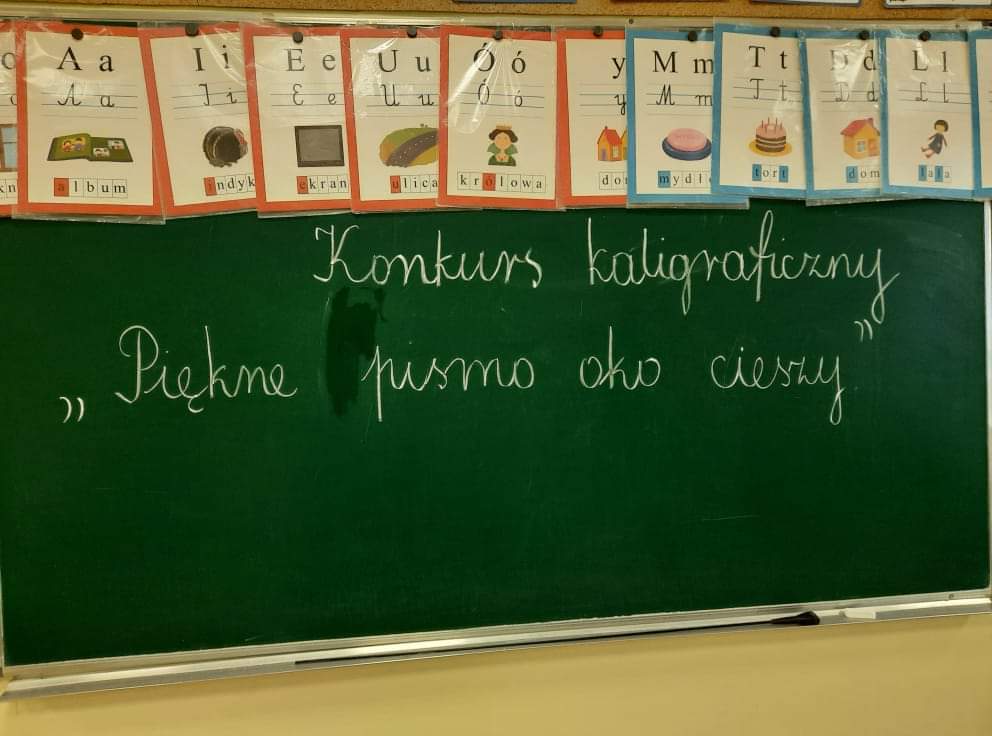 A a I i E e U u Ó ó y M m T t D d L l
A a I i E e U u Ó ó y M m T t D d L l
album indyk ekran ulica królowa mydł tort dom lala
Konkurs kaligraficzny
„Piękne pismo oko cieszy.”